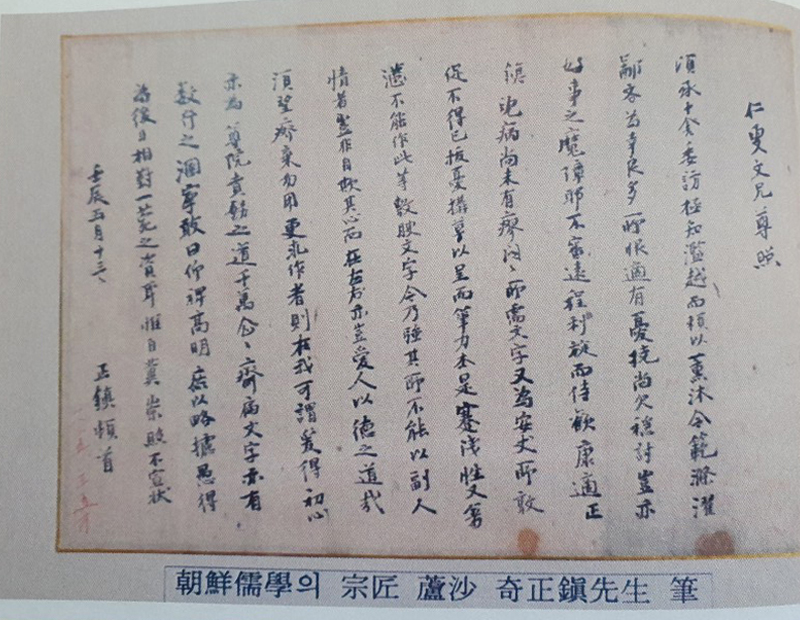 仁叟文兄尊照
須承十舍委訪極知濫越而損以薰沐令範滌濯
鄙吝爲幸良多所恨適有憂撓尚欠穩討豈亦
好事之魔障耶不審遠程利旋而侍歡康適正
鎭 兇病尚未有瘳悶悶所需文字又爲安丈所敦
促不得已拔憂搆草以呈而筆力本是蹇淺性又
不能作此等文字今乃强其所不能以副人
情者豈非自欺其心而在左右亦豈愛人以德之道哉
須望療棄勿用更求作者則在我可謂爰得初心
亦爲尊院責飭之道千萬念念齋扁文字亦有
數行之 敢曰仰裨高明庶以略攄愚得
爲後日相對一笑之資耳惟自冀崇照不宣狀
壬辰五月十三
正鎭頓首
朝鮮儒學의 宗匠 蘆沙 奇正鎭先生 筆